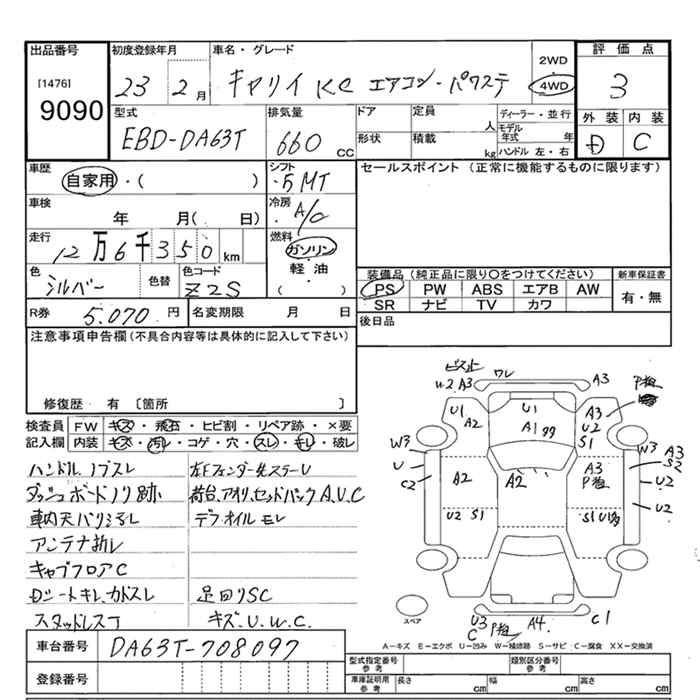 出品番号 初度登録年月 車名・グレード 2WD 評価点
[1476] 9090 23 2月 キャリイ KC エアコン・パワステ 4WD 3
型式 排気量 ドア 定員 人 ディーラー・並行 外装 内装
EBD-DA63T 660 CC 形状 積載 kg モデル年式 年 ハンドル 左・右 D C
車歴 自家用・( ) シフト ・5MT セールスポイント (正常に機能するものに限ります)
車検 年 月( 日) 冷房 ・A/C
走行 12万6千350km 燃料 ガソリン 軽油 ( )
色 シルバー 色替 色コード Z2S 装備品(純正品に限り○をつけてください) 新車保証書
PS PW ABS エアB AW 有・無
SR ナビ TV カワ
R券 5.070円 名変期限 月 日 後日品
注意事項申告欄(不具合内容等は具体的に記入して下さい)
修復歴 有〔箇所 〕
検査員 FW キズ・飛石・ヒビ割・リペア跡・×要
記入欄 内装 キズ・汚レ・コゲ・穴・スレ・キレ・破レ
ハンドル、ノブスレ 左Fフェンダー先スラーU
ダッシュボードノリ跡 荷台、アオリ、セッドバック A.U.C
車内天バリシミレ デフオイルモレ
アンテナ折レ
キャブフロアC
Dシートキレ、カドスレ 足回リSC
スタッドレスT キズ.U.W.C.
ビス止
U2 A3 ワレ A3 P粗
U1 A2 U1 A1 ﾀﾀ A3 U2 S1
W3 U C2 A2 A2 A3 P粗 W3 A3 S2 U2
U2 S1 S1 U1ﾀﾀ U2
スペア U3 C P粗 A4. C1
A-キズ E-エクボ U-凹み W-補修跡 S-サビ C-腐食 XX-交換済
車台番号 DA63T-708097
登録番号
型式指定番号 参考 類別区分番号 参考
車庫証明用 参考 長さ cm 幅 cm 高さ cm